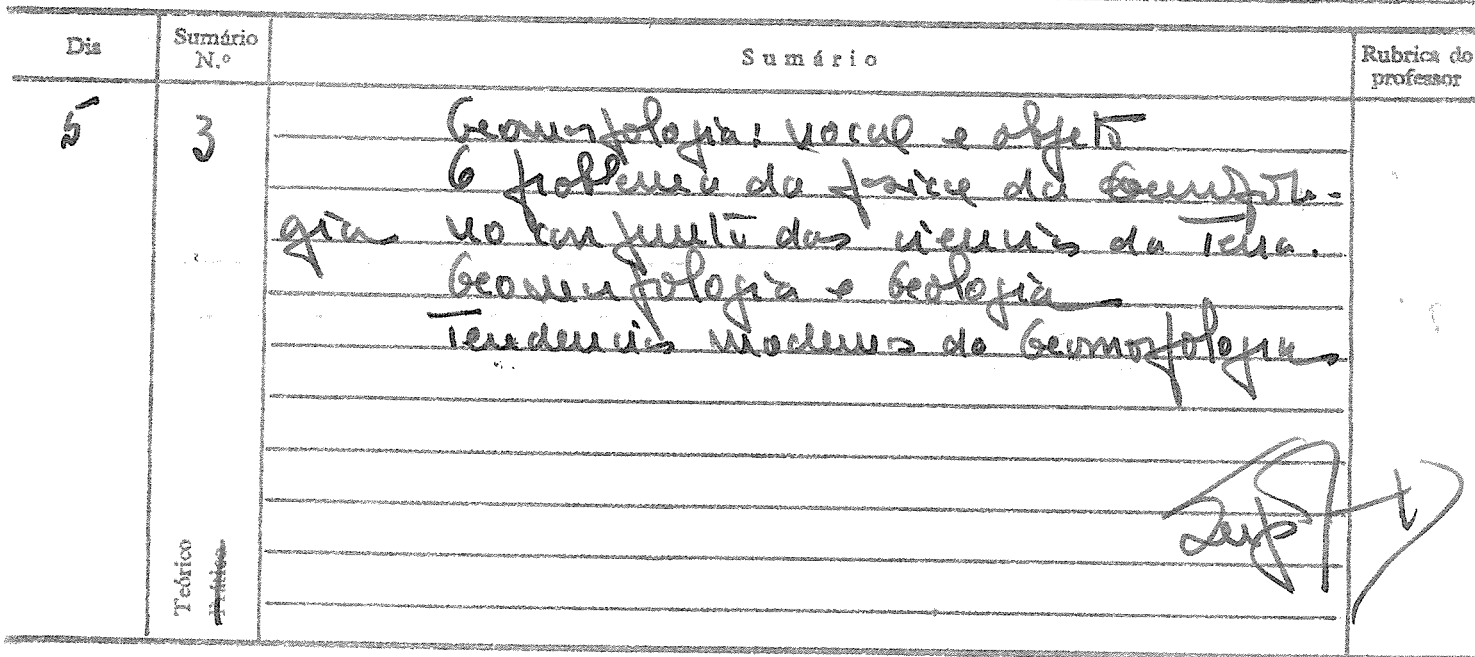 Dia
Sumário N.º
Sumário
Rubrica do professor
5
3
Geomorfologia: e objeto
O problema da da Geomorfolo-
gia no conjunto das ciencias da Terra.
Geomorfologia e Geologia
Tendencias modernas da Geomorfologia
Teórico
Prático